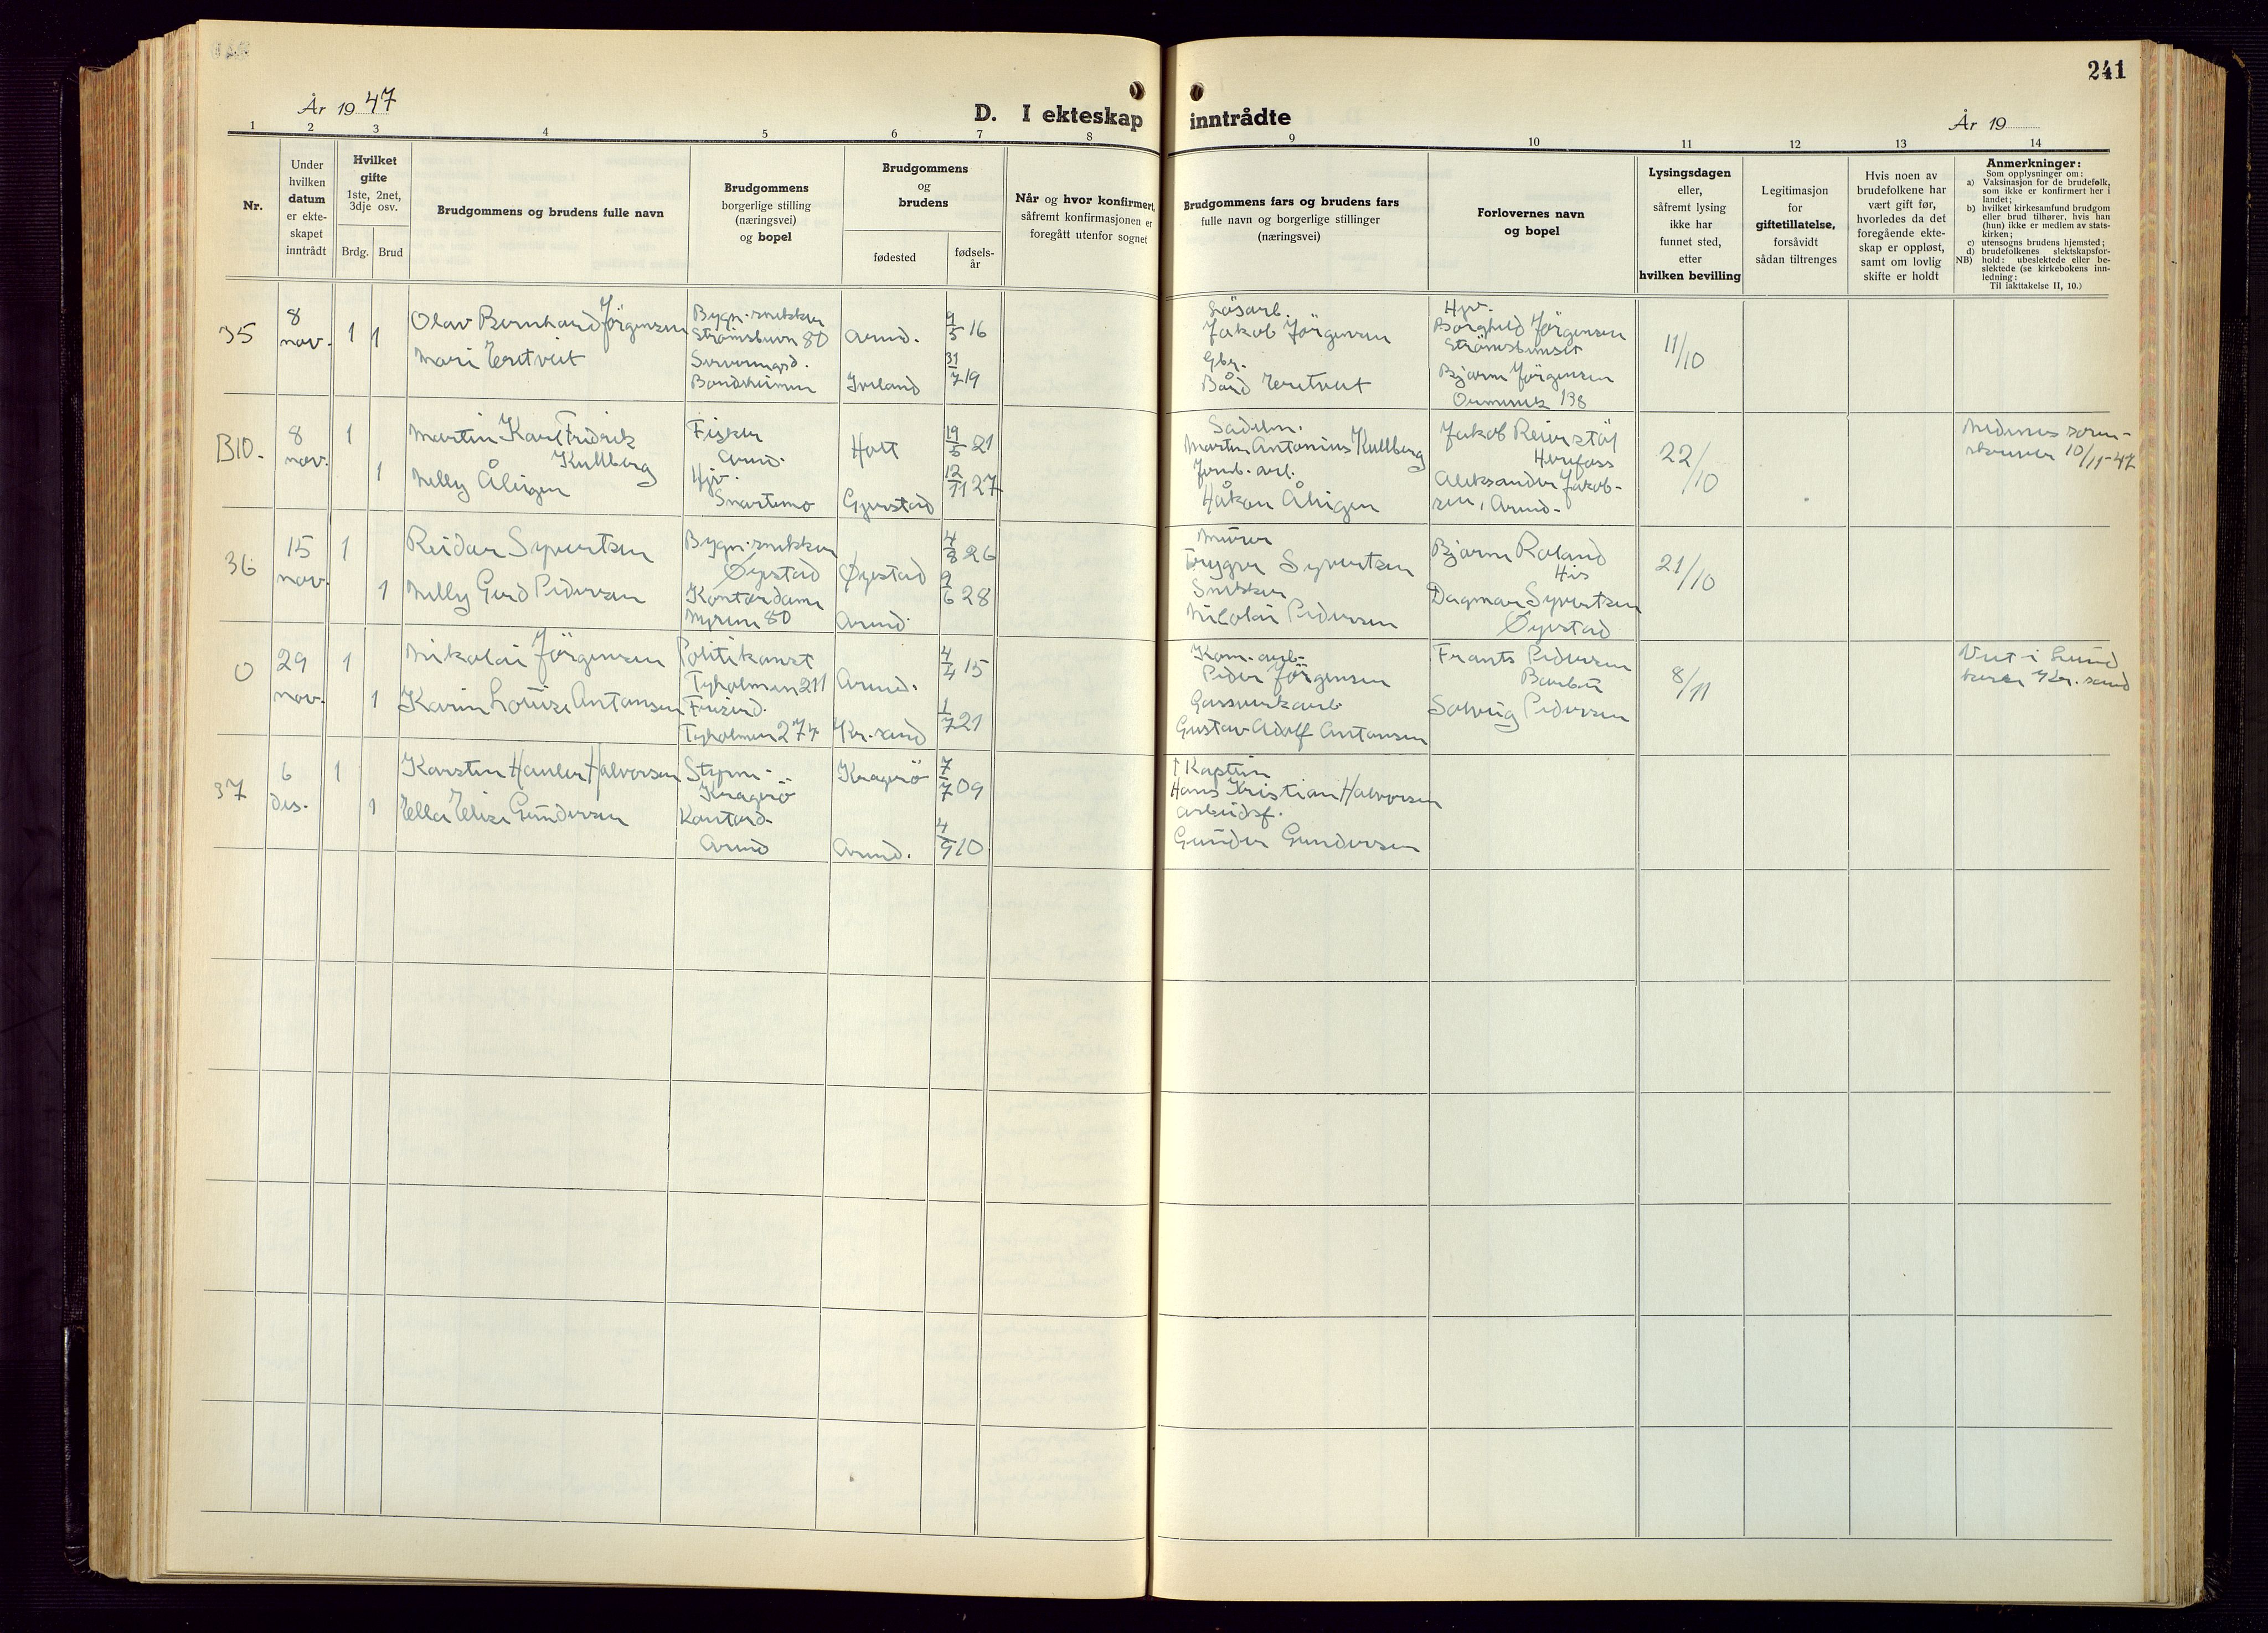 241
År 1947
D. I ekteskap inntrådte
År 19
1 2 3 4 5 6 7 8 9 10 11 12 13 14
Nr.
Under
hvilken
datum
er ekte-
skapet
inntrådt
Hvilket
gifte
1ste, 2net,
3dje osv.
Brdg. Brud
Brudgommens og brudens fulle navn
Brudgommens
borgerlige stilling
(næringsvei)
og bopel
Brudgommens
og
brudens
fødested
fødsels-
år
Når og hvor konfirmert,
såfremt konfirmasjonen er
foregått utenfor sognet
Brudgommens fars og brudens fars
fulle navn og borgerlige stillinger
(næringsvei)
Forlovernes navn
og bopel
Lysingsdagen
eller,
såfremt lysing
ikke har
funnet sted,
etter
hvilken bevilling
Legitimasjon
for
giftetillatelse,
forsåvidt
sådan tiltrenges
Hvis noen av
brudefolkene har
vært gift før,
hvorledes da det
foregående ekte-
skap er oppløst,
samt om lovlig
skifte er holdt
Anmerkninger:
Som opplysninger om:
a) Vaksinasjon for de brudefolk,
som ikke er konfirmert her i
landet;
b) hvilket kirkesamfund brudgom
eller brud tilhører, hvis han
(hun) ikke er medlem av stats-
kirken;
c) utensogns brudens hjemsted;
d) brudefolkenes slektskapsfor-
NB) hold: ubeslektede eller be-
slektede (se kirkebokens inn-
ledning:
Til iakttakelse II, 10.)
35
8
nov.
1 1
Olav Bernhard Jörgensen
Mari Eretveit
Bygn.snekker
Strømsbuvn 80
Bondeheimen
Arend.
Iveland
9/5 16
31/7 19
Løsarb.
Jakob Jörgensen
Gbr.
Bård Eretveit
Hjv.
Borghild Jörgensen
Bjarne Jörgensen
11/10
B10.
8
nov.
1
1
Martin Karl Fridrik
Kullberg
Nelly Ålingen
Fisker
Arend.
Hjv.
Snartemo
Holt
Gjerstad
19/5 21
12/11 27
Sadelm.
Martin Antonius Kullberg
Jernb.arb.
Håkon Ålingen
Jakob Reierstöl
Herefoss
Aleksander Jakob-
sen, Arend.
22/10
Nedenes soren-
skriver 10/11-47
36
15
nov.
1
1
Reidar Syvertsen
Nelly Gerd Pedersen
Bygn.snekker
Øyestad
Kontordame
Myrene 80
Øyestad
Arend.
4/8 26
9/6 28
Murer
Trygve Syvertsen
Snekker
Nicolai Pedersen
Bjarne Roland
His
Dagmar Syvertsen
Øyestad
21/10
0
29
nov.
1
1
Nikolai Jörgensen
Karin Louise Antonsen
Politikonst
Tyholmen 211
Friserd.
Tyholmen 274
Arend.
Kr.sand
4/4 15
1/7 21
Kom.arb.
Peder Jörgensen
Gassverkarb.
Gustav Adolf Antonsen
Frants Pedersen
Barbu
Solveig Pedersen
8/11
Viet i Lund
kirke Kr.sand
37
6
des.
1
1
Karsten Hauler Halvorsen
Ella Elise Gundersen
Styrm.
Kragerö
Kontord.
Arend
Kragerö
Arend.
7/7 09
4/9 10
† Kaptein
Hans Kristian Halvorsen
Arbeidsf.
Gunder Gundersen